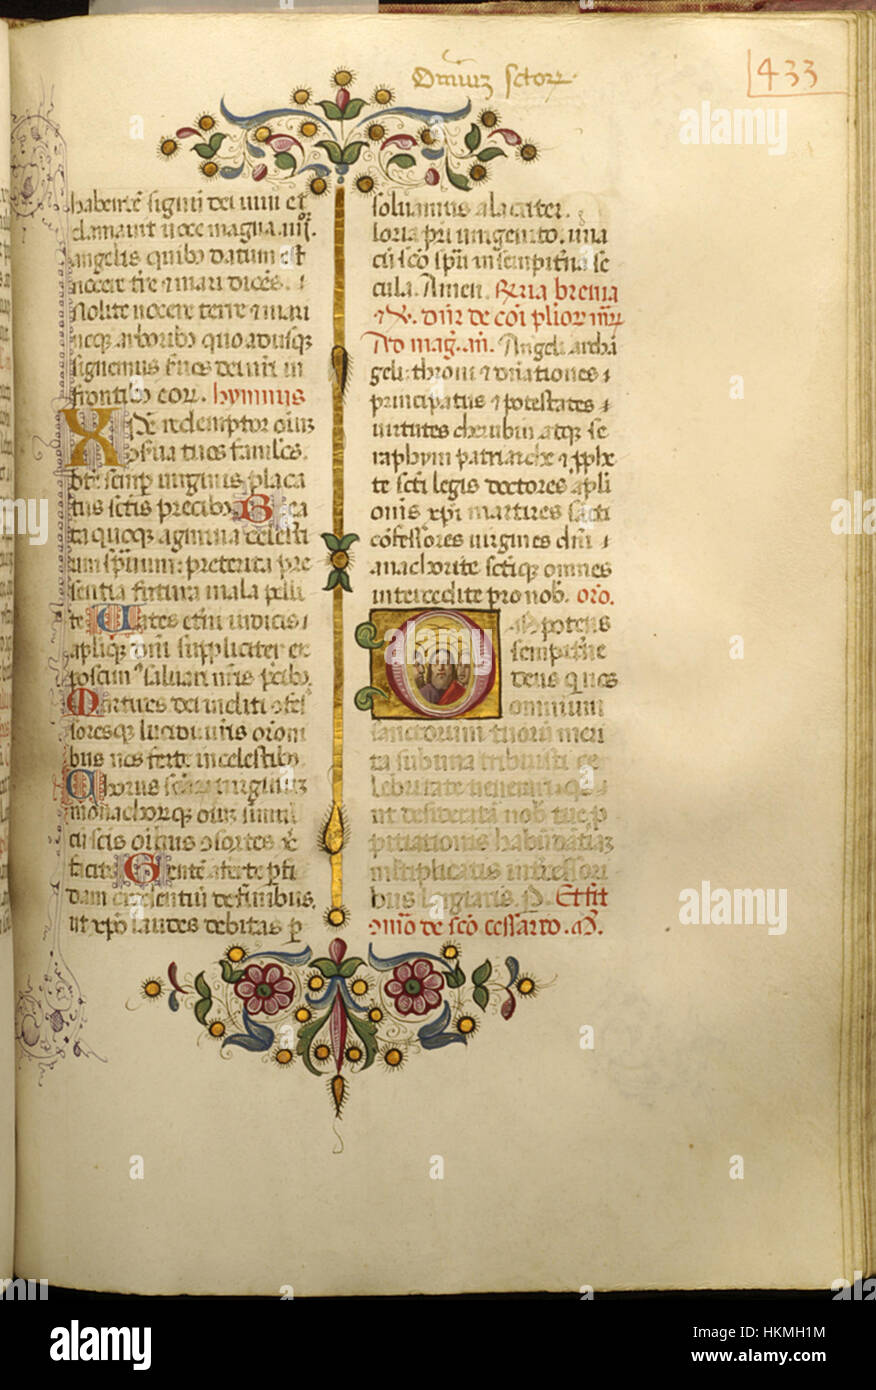 Omniuz sctoꝝ
433
habentē signū dei uiui et
clamauit uoce magna. iiij.
angelis quibꝰ datum est
nocere tr̄e ⁊ mari dicēs.
Nolite nocere terre ⁊ mari
neqꝫ arboribꝰ quo adusqꝫ
signemus s̄uos dei nr̄i in
frontibꝰ eoꝝ. hymnus
XPE redemptor oiuꝫ
ꝯserua tuos famulos.
bt̄e semꝑ uirginis placa
tus sctis precibꝰ. Bea
ta quoqꝫ agmina celesti
um spirituum: preterita pre
sentia futura mala pelli
te. Uates etn̄i iudicis
apliqꝫ dn̄i suppliciter ex
poscimꝰ saluari uris p̄cibꝰ.
Martires dei incliti ꝯfes
soresqꝫ lucidi uris oroni
bus nos ferte in celestibꝰ
Chorus scāꝝ uirginuꝫ
monachorꝫqꝫ oium simul
cū scis oibus ꝯsortes xp̄i
facite. Gentē auferte ꝑfi
dam credentiū de finibus.
ut xpō laudes debitas ꝑ
soluamus alacriter.
loria pr̄i ingenito. una
cū scō spū in sempitn̄a se
cula. Amen. Feria breuia
⁊ ℟. dn̄r de cōi plioꝝ mr̄ꝝ
Ad mag. an̄. Angeli archā
geli: throni ⁊ dn̄ationes
principatus ⁊ potestates
uirtutes cherubin atqꝫ se
raphym patriarche ⁊ ꝓphe
te scti legis doctores apli
omīs xpi martires sācti
cōfessores uirgines dn̄i
anachorite sctiqꝫ omnes
intercedite pro nob. oro.
Omīpotens
sempitn̄e
deus qui nos
omnium
sanctorum tuoruꝫ meri
ta sub una tribuisti ce
lebritate uenerari. qs
ut desideratā nob tue ꝓ
pitiationis habūdātiaꝫ
multiplicatis intercessori
bus largiaris. P. Et fit
ꝯmēo de scō cessario. an̄.
alamy stock photo
alamy
Image ID: HKMH1M
www.alamy.com